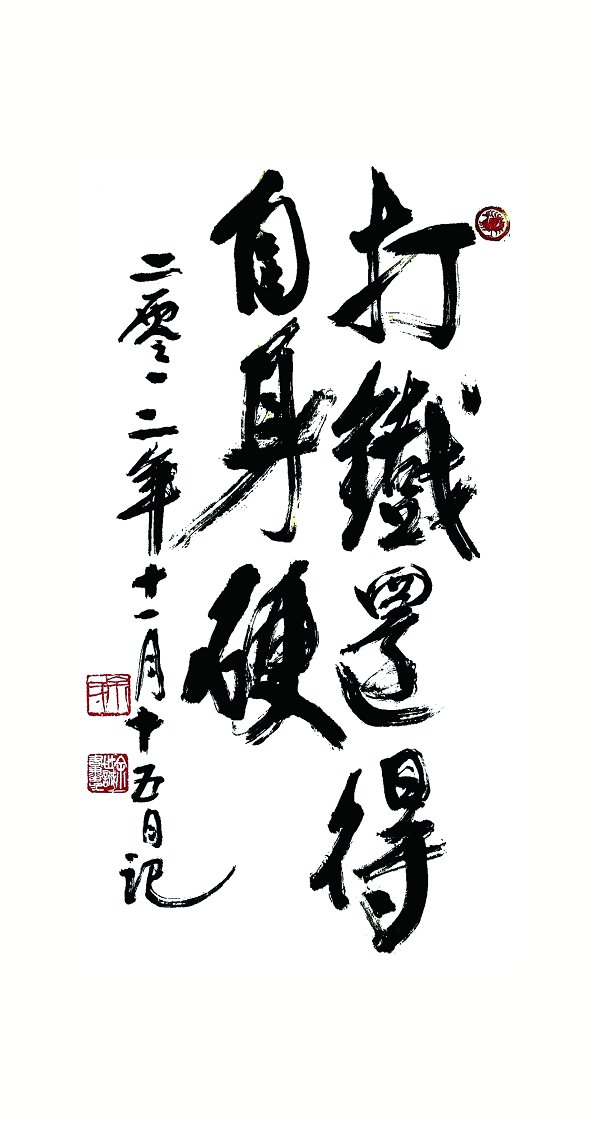 打鐵還得
自身硬
二零一二年十一月十五日記